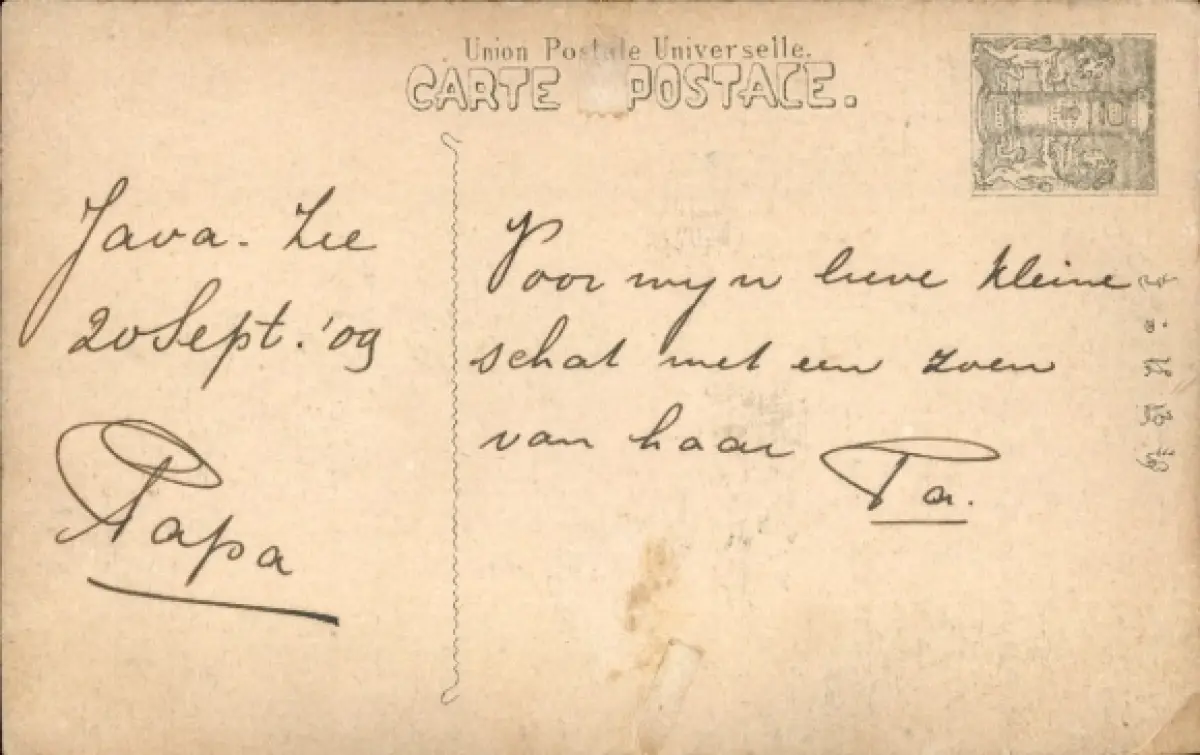 Union Postale Universelle.
CARTE POSTALE.
Java-Zee
20 Sept. '09
Papa
Voor mijn lieve kleine
schat met een zoen
van haar Pa.
10